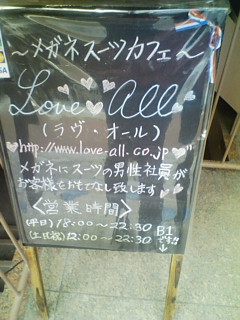 ～メガネスーツカフェ～
Love♡All♡
(ラヴ・オール)
http://www.love-all.co.jp
メガネにスーツの男性社員が
お客様をおもてなし致します♡
〈営業時間〉
(平日)18:00～22:30
(土日祝)12:00～22:30
B1です!!↓